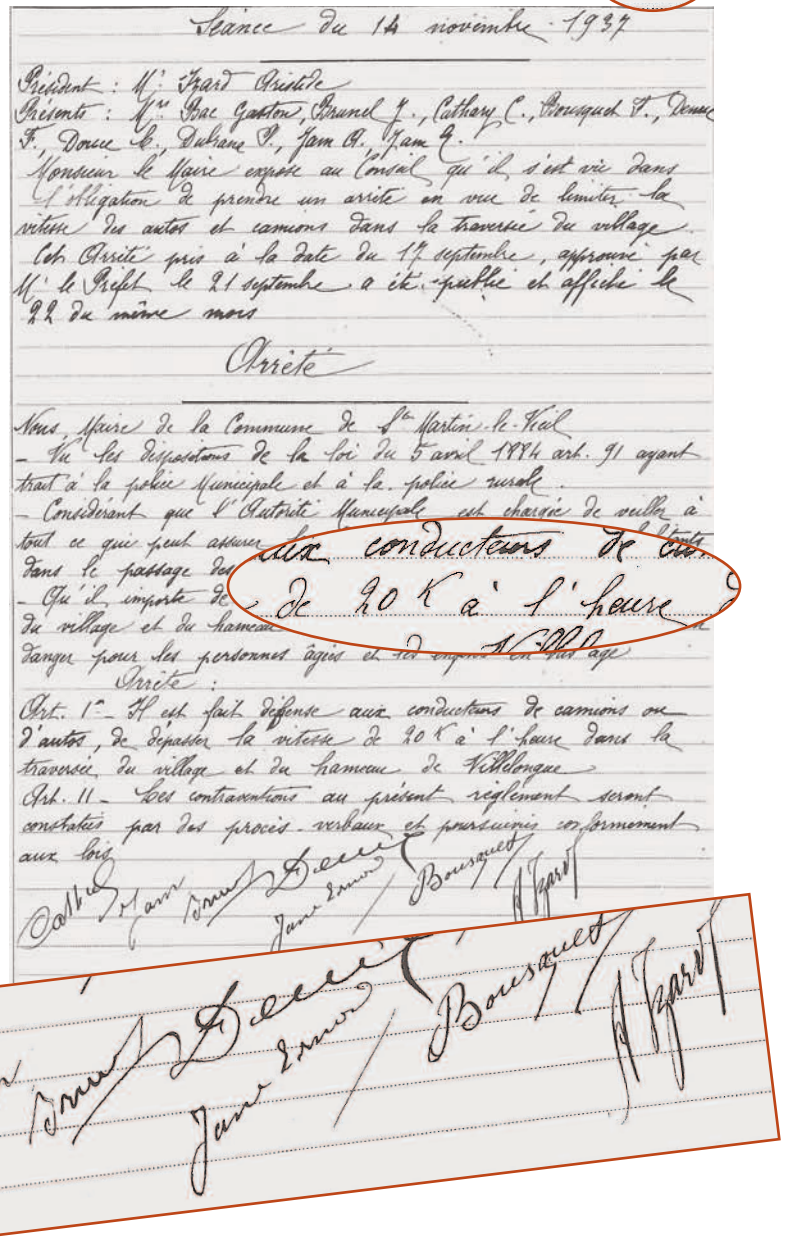 Séance du 14 novembre 1937
Président : Mr Izard Aristide
Présents : Mrs Bac Gaston, Brunel J., Cathary C., Bousquet F.,
F., Douce C., Dubane P., Jam A., Jam E.
Monsieur le Maire expose au Conseil qu'il s'est vu dans
l'obligation de prendre un arrêté en vue de limiter la
vitesse des autos et camions dans la traversée du village.
Cet Arrêté pris à la date du 17 septembre, approuvé par
Mr le Préfet le 21 septembre a été publié et affiché le
22 du même mois
Arrêté
Nous, Maire de la Commune de St Martin-le-Vieil
- Vu les dispositions de la loi du 5 avril 1884 art. 91 ayant
trait à la police Municipale et à la police rurale.
- Considérant que l'Autorité Municipale est chargée de veiller à
tout ce qui peut assurer
dans le passage des
- Qu'il importe de
du village et du hameau
danger pour les personnes âgées et les en bas âge
aux conducteurs de
de 20 K à l'heure
Arrête :
Art. 1er - Il est fait défense aux conducteurs de camions ou
d'autos, de dépasser la vitesse de 20 K à l'heure dans la
traversée du village et du hameau de Villelongue
Art. II - Les contraventions au présent règlement seront
constatées par des procès-verbaux et poursuivis conformément
aux lois
Jam Brunel Bousquet A Izard
Brunel Bousquet A Izard